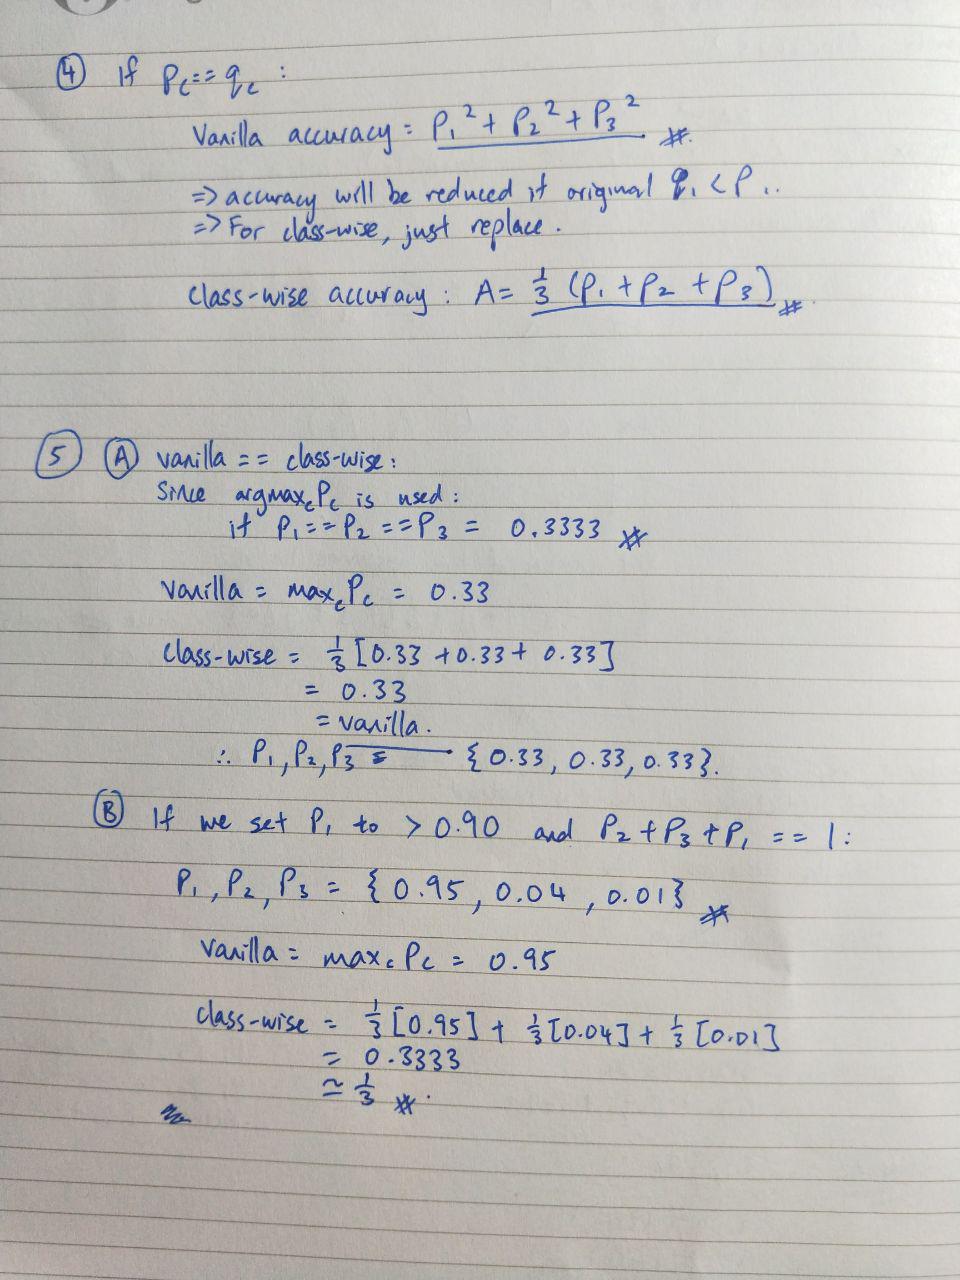 ④ If Pc == qc :
Vanilla accuracy = P₁² + P₂² + P₃²
⇒ accuracy will be reduced if original q₁ < P₁.
⇒ For class-wise, just replace.
Class-wise accuracy : A = 1/3 (P₁ + P₂ + P₃)
⑤ Ⓐ vanilla == class-wise :
Since argmaxc Pc is used :
if P₁ == P₂ == P₃ = 0.3333
Vanilla = maxc Pc = 0.33
Class-wise = 1/3 [0.33 + 0.33 + 0.33]
= 0.33
= vanilla.
∴ P₁, P₂, P₃ = {0.33, 0.33, 0.33}.
Ⓑ If we set P₁ to > 0.90 and P₂ + P₃ + P₁ == 1 :
P₁, P₂, P₃ = {0.95, 0.04, 0.01}
Vanilla = maxc Pc = 0.95
class-wise = 1/3 [0.95] + 1/3 [0.04] + 1/3 [0.01]
= 0.3333
≃ 1/3